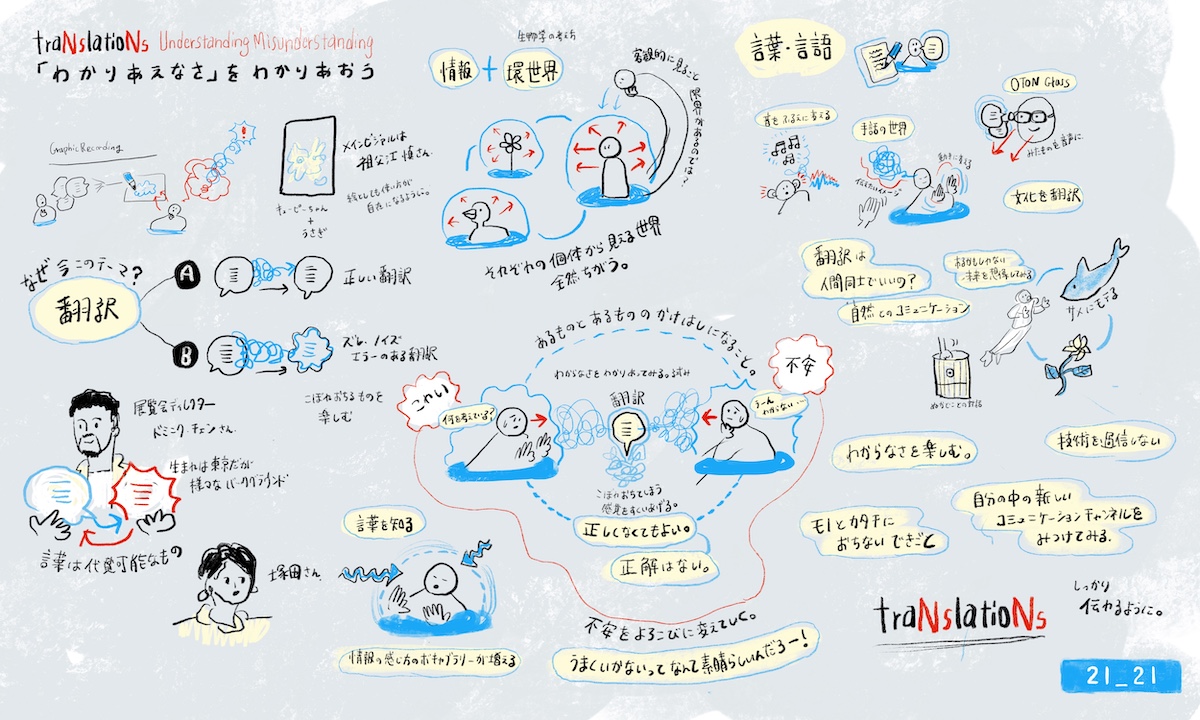 traNslatioNs Understanding Misunderstanding
「わかりあえなさ」をわかりあおう
Graphic Recording
!
メインビジュアルは
祖父江慎さん。
絵としても使い方が
自在になるように。
キューピーちゃん
+
うさぎ
生物学の考え方
情報 + 環世界
客観的に見ること
限界があるのでは?
それぞれの個体から見える世界
全然ちがう。
言葉・言語
音をふるえに変える
手話の世界
伝えたいイメージ
動きに変える
OTON Glass
みたものを音声に。
文化を翻訳
なぜ今このテーマ?
翻訳
A
正しい翻訳
B
ズレ、ノイズ
エラーのある翻訳
こぼれおちるものを
楽しむ
展覧会ディレクター
ドミニク・チェンさん。
生まれは東京だが
様々なバックグラウンド
言葉は代替可能なもの
塚田さん。
言葉を知る
情報の感じ方のボキャブラリーが増える
あるものとあるもののかけはしになること。
わからなさをわかりあってみる。
こわい
何を考えてる?
翻訳
不安
うーん
わからない…
こぼれおちてしまう
感覚をすくいあげる。
正しくなくてもよい。
正解はない。
不安をよろこびに変えていく。
うまくいかないってなんて素晴らしいんだろー!
翻訳は
人間同士でいいの?
自然とのコミュニケーション
あるかもしれない
未来を想像してみる
サメにモテる
ぬかどことの対話
わからなさを楽しむ。
技術を過信しない
モノとカタチに
おちないできごと
自分の中の新しい
コミュニケーションチャンネルを
みつけてみる。
traNslatioNs
しっかり
伝わるように。
21_21